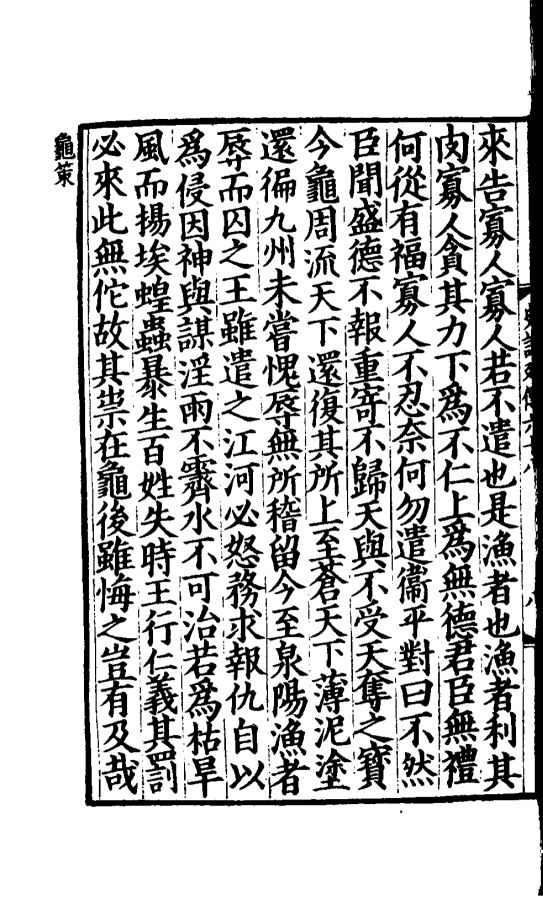 來告寡人寡人若不遣也是漁者也漁者利其
肉寡人貪其力下為不仁上為無德君臣無禮
何從有福寡人不忍柰何勿遣衞平對曰不然
臣聞盛德不報重寄不歸天與不受天奪之寶
今龜周流天下還復其所上至蒼天下薄泥塗
還徧九州未嘗愧辱無所稽留今至泉陽漁者
辱而囚之王雖遣之江河必怒務求報仇自以
為侵因神與謀淫雨不霽水不可治若為枯旱
風而揚埃蝗蟲暴生百姓失時王行仁義其罰
必來此無佗故其祟在龜後雖悔之豈有及哉
龜策